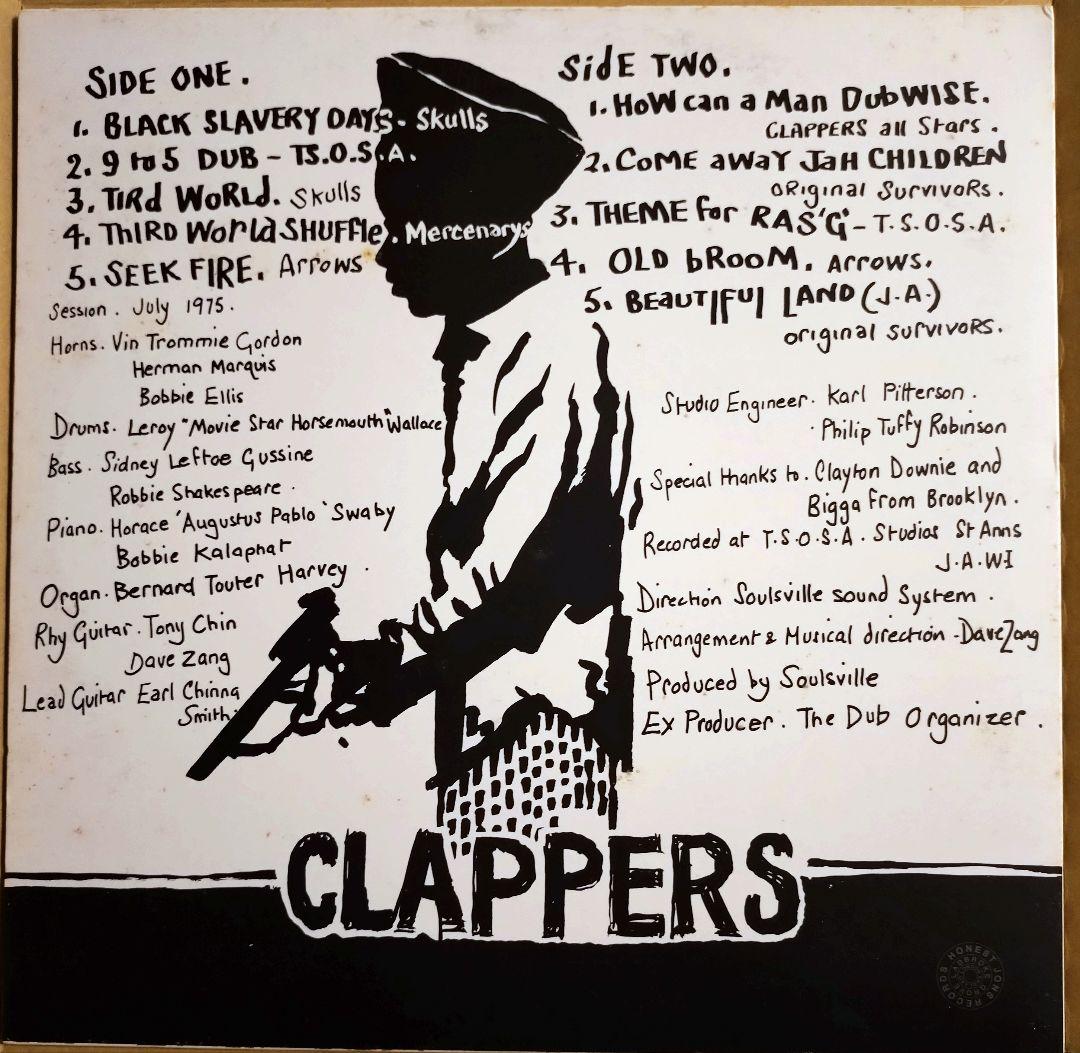 SIDE ONE.
1. BLACK SLAVERY DAYS - Skulls
2. 9 to 5 DUB - T.S.O.S.A.
3. TIRd WoRLd. Skulls
4. THIRD World SHUFFle. Mercenarys
5. SEEK FIRE. Arrows
Session. July 1975.
Horns. Vin Trommie Gordon
Herman Marquis
Bobbie Ellis
Drums. Leroy "Movie Star Horsemouth" Wallace
Bass. Sidney Leftoe Gussine
Robbie Shakespeare.
Piano. Horace 'Augustus Pablo' Swaby
Bobbie Kalaphat
Organ. Bernard Touter Harvey.
Rhy Guitar. Tony Chin
Dave Zang
Lead Guitar Earl Chinna
Smith.
SidE TWO.
1. HoW can a Man DubWISE.
CLAPPERS all Stars.
2. CoME aWaY JaH CHILDREN
ORiginal SurvivoRs.
3. THEME for RAS'G' - T.S.O.S.A.
4. OLD bRooM. Arrows.
5. BEAUTIfUl LAND (J.A.)
original survivoRs.
Studio Engineer. Karl Pitterson.
. Philip Tuffy Robinson
Special thanks to. Clayton Downie and
Bigga from Brooklyn.
Recorded at T.S.O.S.A. Studios St Anns
J.A.WI
Direction Soulsville sound System.
Arrangement & Musical direction - Dave Zang
Produced by Soulsville
Ex Producer. The Dub Organizer.
CLAPPERS
HONEST JONS RECORDS
LADBROKE GROVE